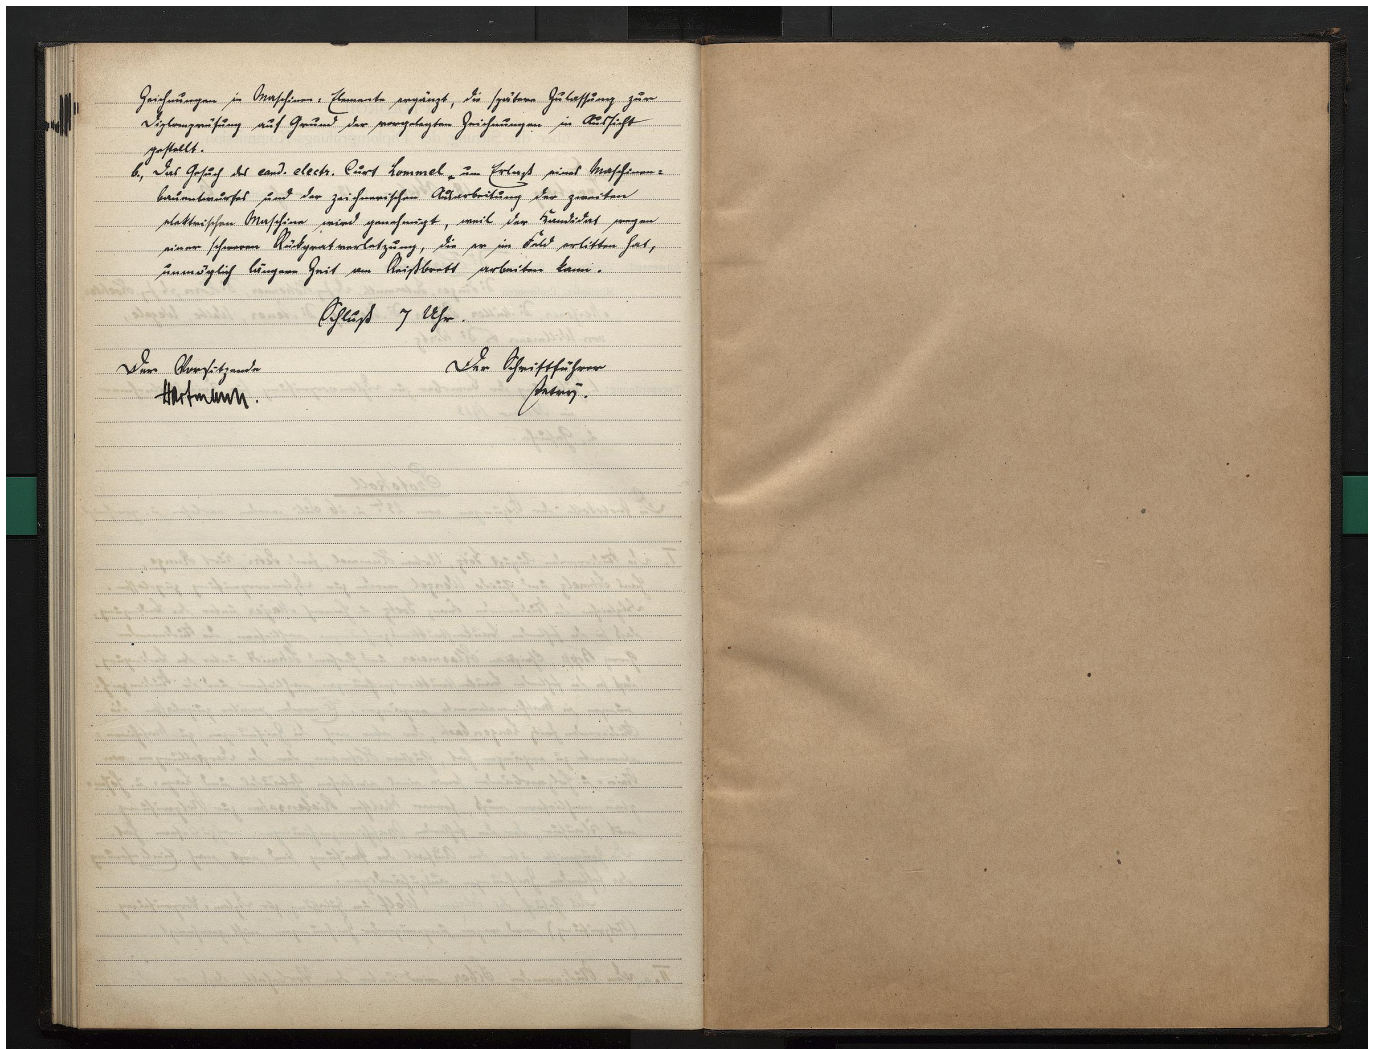 Zeichnungen in Maschinen-Elemente ergänzt, die spätere Zulassung zur
Diplomprüfung auf Grund der vorgelegten Zeichnungen in Aussicht
gestellt.
6., Das Gesuch des cand. electr. Curt Lommel um Erlaß eines Maschinen-
bauentwurfes und der zeichnerischen Ausarbeitung der zweiten
elektrischen Maschine wird genehmigt, weil der Kandidat wegen
einer schweren Rükgratverletzung, die er im Feld erlitten hat,
unmöglich längere Zeit am Reißbrett arbeiten kann.
Schluß 7 Uhr.
Der Vorsitzende
Der Schriftführer
Hartmann.
Petry.